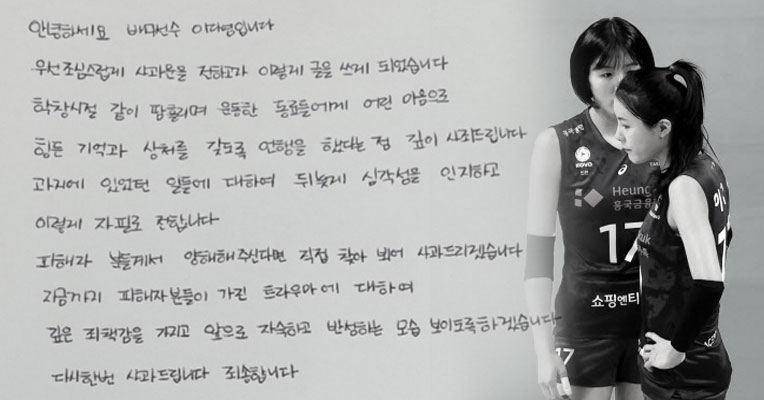 안녕하세요 배구선수 이다영입니다
우선 조심스럽게 사과문을 전하고자 이렇게 글을 쓰게 되었습니다
학창시절 같이 땀 흘리며 운동한 동료들에게 어린 마음으로
힘든 기억과 상처를 갖도록 언행을 했다는 점 깊이 사죄드립니다
과거에 있었던 일들에 대하여 뒤늦게 심각성을 인지하고
이렇게 자필로 전합니다
피해자 분들께서 양해해주신다면 직접 찾아 뵈어 사과드리겠습니다
지금까지 피해자분들이 가진 트라우마에 대하여
깊은 죄책감을 가지고 앞으로 자숙하고 반성하는 모습 보이도록하겠습니다
다시한번 사과드립니다 죄송합니다
KOVO
Heung
흥국금융
17
쇼핑엔티
17